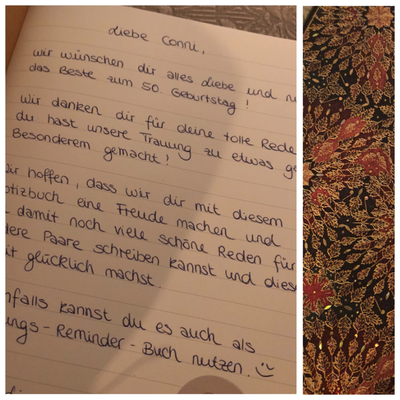 Liebe Conni,
wir wünschen dir alles Liebe und
das Beste zum 50. Geburtstag!
Wir danken dir für deine tolle Rede
du hast unsere Trauung zu etwas
Besonderem gemacht!
hoffen, dass wir dir mit diesem
eine Freude machen und
damit noch viele schöne Reden für
Paare schreiben kannst und
glücklich machst.
kannst du es auch als
-Reminder-Buch nutzen.